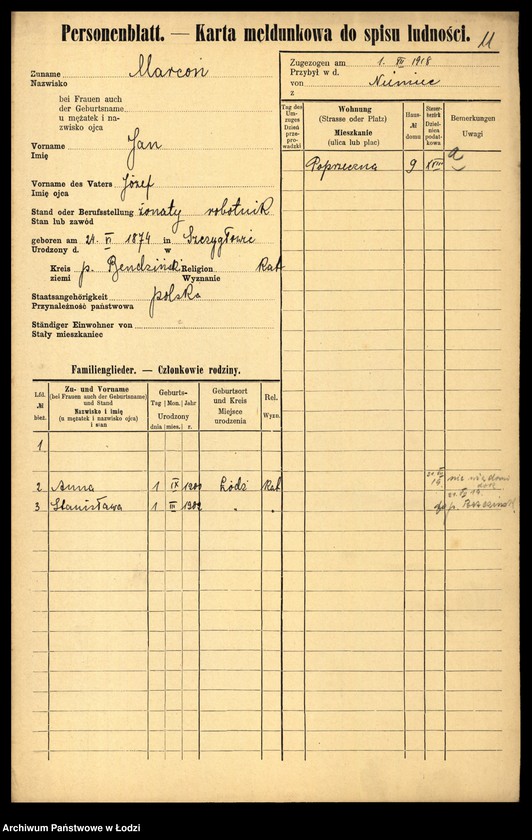 Personenblatt. — Karta meldunkowa do spisu ludności.
11
Zuname Marcoń
Nazwisko
bei Frauen auch
der Geburtsname
u mężatek i na-
zwisko ojca
Vorname Jan
Imię
Vorname des Vaters Józef
Imię ojca
Stand oder Berufsstellung żonaty robotnik
Stan lub zawód
geboren am 24. VI 1874 in Szczygłowie
Urodzony d. w
Kreis p. Bendziński Religion Kat
ziemi Wyznanie
Staatsangehörigkeit polska
Przynależność państwowa
Ständiger Einwohner von
Stały mieszkaniec
Zugezogen am 1. XII 1918
Przybył w d.
von Niemiec
z
Tag des Um-
zuges
Dzień
prze-
pro-
wadzki
Wohnung
(Strasse oder Platz)
Mieszkanie
(ulica lub plac)
Haus-
№
domu
Steuer-
bezirk
Dziel-
nica
podat-
kowa
Bemerkungen
Uwagi
Poprzeczna 9 XVIII a
Familienglieder. — Członkowie rodziny.
Lfd.
№
bież.
Zu- und Vorname
(bei Frauen auch der Geburtsname)
und Stand
Nazwisko i imię
(u mężatek i nazwisko ojca)
i stan
Geburts-
Tag | Mon. | Jahr
Urodzony
dnia | mies. | r.
Geburtsort
und Kreis
Miejsce
urodzenia
Rel.
Wyzn.
1
2 Anna 1 IX Łódź Kat
3 Stanisława 1 III 1902 " "
Archiwum Państwowe w Łodzi